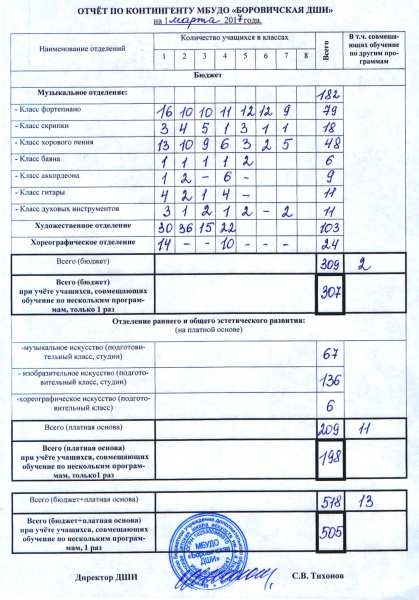 ОТЧЁТ ПО КОНТИНГЕНТУ МБУДО «БОРОВИЧСКАЯ ДШИ»
на 1 марта 2017 года.
Наименование отделений Количество учащихся в классах Всего В т.ч. совмеща-
ющих обучение
по другим про-
граммам
1 2 3 4 5 6 7 8
Бюджет
Музыкальное отделение: 182
- Класс фортепиано 16 10 10 11 12 12 9 79
- Класс скрипки 3 4 5 1 3 1 1 18
- Класс хорового пения 13 10 9 6 3 2 5 48
- Класс баяна 1 1 1 1 2 6
- Класс аккордеона 1 2 - 6 - 9
- Класс гитары 4 2 1 4 - 11
- Класс духовых инструментов 3 1 2 1 2 - 2 11
Художественное отделение 30 36 15 22 103
Хореографическое отделение 14 - - 10 - - - 24
Всего (бюджет) 309 2
Всего (бюджет)
при учёте учащихся, совмещающих
обучение по нескольким програм-
мам, только 1 раз 307
Отделение раннего и общего эстетического развития:
(на платной основе)
-музыкальное искусство (подготови-
тельный класс, студии) 67
- изобразительное искусство (подгото-
вительный класс, студии) 136
-хореографическое искусство (подгото-
вительный класс) 6
Всего (платная основа) 209 11
Всего (платная основа)
при учёте учащихся, совмещающих
обучение по нескольким програм-
мам, только1 раз 198
Всего (бюджет+платная основа) 518 13
Всего (бюджет+платная основа)
при учёте учащихся, совмещающих
обучение по нескольким програм-
мам, 1 раз 505
МБУДО
«Боровичская
ДШИ»
Директор ДШИ С.В. Тихонов